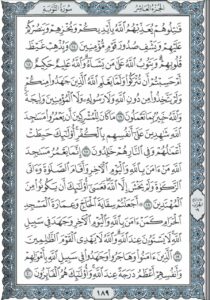 الجُزْءُ العَاشِرُ سُورَةُ التَّوْبَةِ
قَٰتِلُوهُمْ يُعَذِّبْهُمُ ٱللَّهُ بِأَيْدِيكُمْ وَيُخْزِهِمْ وَيَنصُرْكُمْ
عَلَيْهِمْ وَيَشْفِ صُدُورَ قَوْمٍ مُّؤْمِنِينَ ١٤ وَيُذْهِبْ غَيْظَ
قُلُوبِهِمْ وَيَتُوبُ ٱللَّهُ عَلَىٰ مَن يَشَآءُ وَٱللَّهُ عَلِيمٌ حَكِيمٌ ١٥
أَمْ حَسِبْتُمْ أَن تُتْرَكُوا۟ وَلَمَّا يَعْلَمِ ٱللَّهُ ٱلَّذِينَ جَٰهَدُوا۟ مِنكُمْ
وَلَمْ يَتَّخِذُوا۟ مِن دُونِ ٱللَّهِ وَلَا رَسُولِهِۦ وَلَا ٱلْمُؤْمِنِينَ وَلِيجَةً
وَٱللَّهُ خَبِيرٌۢ بِمَا تَعْمَلُونَ ١٦ مَا كَانَ لِلْمُشْرِكِينَ أَن يَعْمُرُوا۟ مَسَٰجِدَ
ٱللَّهِ شَٰهِدِينَ عَلَىٰٓ أَنفُسِهِم بِٱلْكُفْرِ أُو۟لَٰٓئِكَ حَبِطَتْ
أَعْمَٰلُهُمْ وَفِى ٱلنَّارِ هُمْ خَٰلِدُونَ ١٧ إِنَّمَا يَعْمُرُ مَسَٰجِدَ
ٱللَّهِ مَنْ ءَامَنَ بِٱللَّهِ وَٱلْيَوْمِ ٱلْءَاخِرِ وَأَقَامَ ٱلصَّلَوٰةَ وَءَاتَى
ٱلزَّكَوٰةَ وَلَمْ يَخْشَ إِلَّا ٱللَّهَ فَعَسَىٰٓ أُو۟لَٰٓئِكَ أَن يَكُونُوا۟ مِنَ
ٱلْمُهْتَدِينَ ١٨ أَجَعَلْتُمْ سِقَايَةَ ٱلْحَآجِّ وَعِمَارَةَ ٱلْمَسْجِدِ
ٱلْحَرَامِ كَمَنْ ءَامَنَ بِٱللَّهِ وَٱلْيَوْمِ ٱلْءَاخِرِ وَجَٰهَدَ فِى سَبِيلِ
ٱللَّهِ لَا يَسْتَوُۥنَ عِندَ ٱللَّهِ وَٱللَّهُ لَا يَهْدِى ٱلْقَوْمَ ٱلظَّٰلِمِينَ
١٩ ٱلَّذِينَ ءَامَنُوا۟ وَهَاجَرُوا۟ وَجَٰهَدُوا۟ فِى سَبِيلِ ٱللَّهِ بِأَمْوَٰلِهِمْ
وَأَنفُسِهِمْ أَعْظَمُ دَرَجَةً عِندَ ٱللَّهِ وَأُو۟لَٰٓئِكَ هُمُ ٱلْفَآئِزُونَ ٢٠
١٨٩